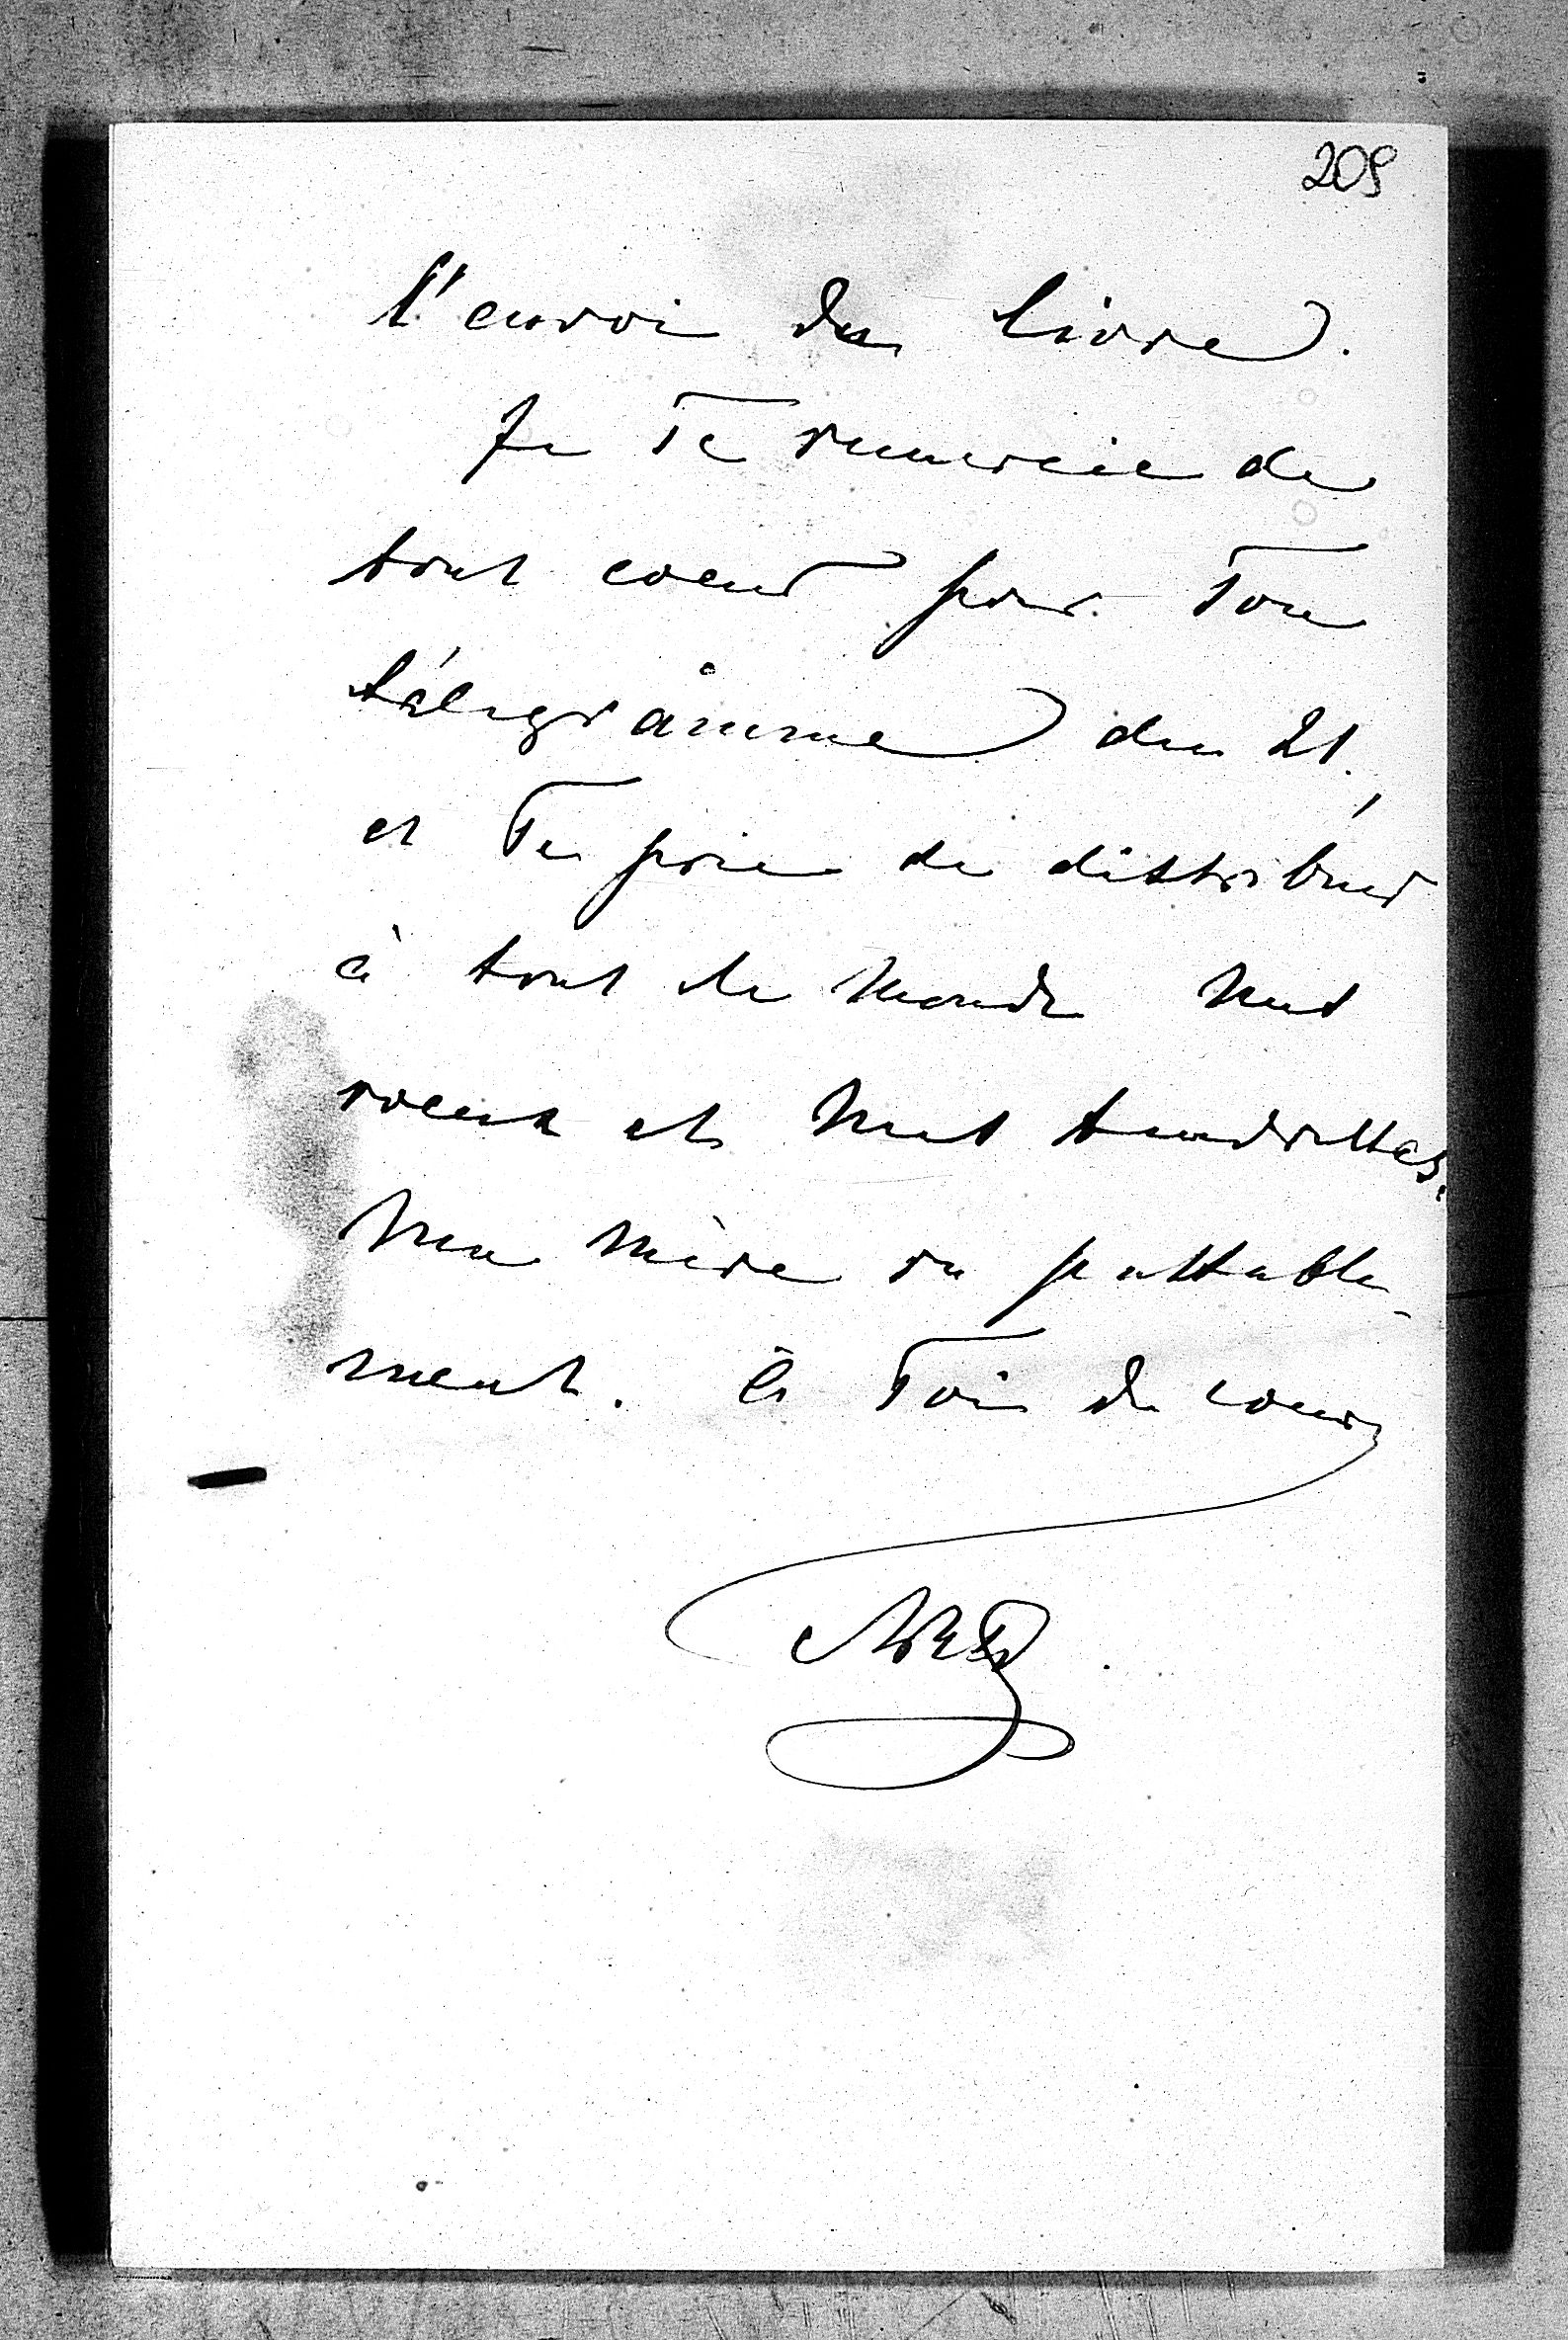 209
l'envoi du livre.
Je Te remercie de
tout coeur pour Ton
télégramme du 21.,
et Te prie de distribuer
à tout le monde mes
voeux et mes tendresses.
Ma mère va passable-
ment. à Toi de coeur